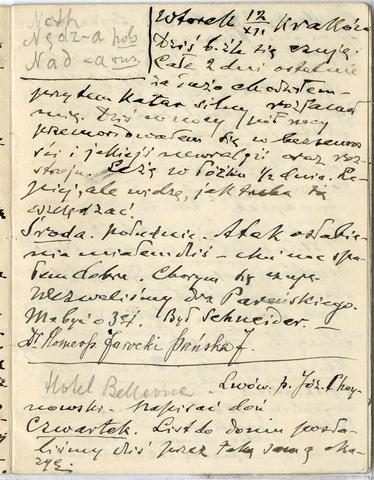 Noth
Nędz-a pols
Nad - a rus.
Wtorek 12/XII Kraków
Dziś b. źle się czuję.
Całe 2 dni ostatnie
za dużo chodziłem -
przytem katar silny
mię. Dziś w nocy / pół nocy
przemordowałem się w bezsenno
ści i jakiejś newralgii oraz roz-
stroju. Leżę w łóżku ½ dnia. Le-
piej, ale widzę, jak trzeba się
oszczędzać.
Środa. południe. Atak osłabie-
nia miałem dziś - choć noc spa-
łem dobrze. Chorym się czuję.
Wezwaliśmy Dra Pareńskiego.
Ma być o 3ej. Był Schneider. -
Dr Homeop. Jarocki Pańska 7.
Hotel Bellevue Lwów. p. Józ. Choy-
nowski - napisać doń
Czwartek. List do domu posła-
liśmy dziś przez taką samą oka-
zyę.